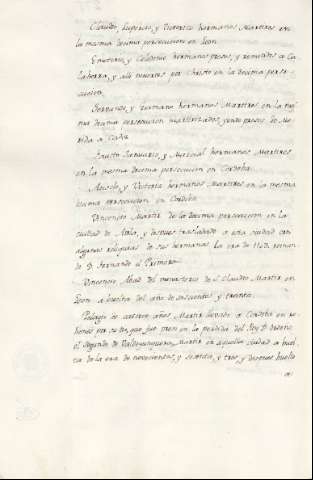 Claudio, Lupercio, y Victorico hermanos Martires en
la mesma decima persecucion en leon.
Emeterio, y Celedonio hermanos presos, y remitidos a Ca-
lahorra, y alli muertos por Christo en la decima perse-
cucion.
Servando, y Germano hermanos Martires en la mes-
ma decima persecucion martirizados, yendo presos de Me-
rida a Cadiz
Fausto Januario, y Marcial hermanos Martires
en la mesma decima persecucion en Cordoba.
Aciselo, y Victoria hermanos Martires en la mesma
decima persecucion en Cordoba
Vincencio Martir de la decima persecucion en la
ciudad de Avila, y despues trasladado a otra ciudad con
algunas reliquias de sus hermanas la era de
de D. Fernando el Primero
Vincencio Abad del monasterio de S. Claudio Martir en
leon a bueltas del año de seiscientos y treinta.
Pelagio de catorce años Martir llevado a Cordoba en re-
henes por su tio, que fue preso en la perdida del Rey D. Ordoño
el segundo de Valdejunquera, Martir en aquella ciudad a buel-
tas de la era de novecientos, y sesenta, y tres, y despues buelto
a